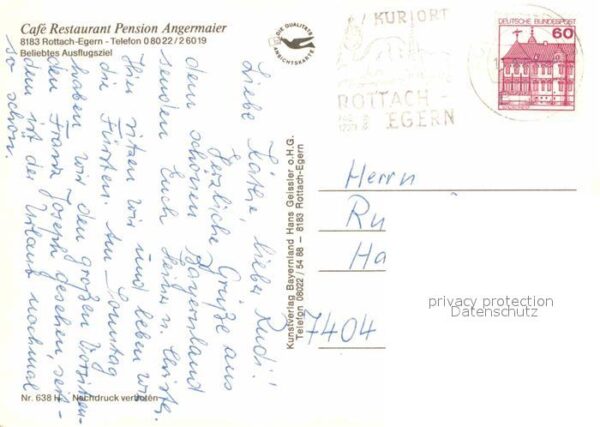 Café Restaurant Pension Angermaier
8183 Rottach-Egern - Telefon 0 80 22 / 2 60 19
Beliebtes Ausflugsziel
DIE QUALITÄTS
ANSICHTSKARTE
KURORT
ROTTACH -
EGERN
DEUTSCHE BUNDESPOST
60
Liebe Käthe, lieber Rudi!
Herzliche Grüße aus
dem schönen Bayernland
senden Euch Heinz u. Christel.
Hier sitzen wir und leben wie
die Fürsten. Am Sonntag
haben wir den großen Vorsitzen-
den Franz Joseph gesehen, seit-
dem ist der Urlaub nochmal
so schön.
Kunstverlag Bayernland Hans Geissler o.H.G.
Telefon 08022 / 54 88 — 8183 Rottach-Egern
Herrn
Ru
Ha
7404
privacy protection
Datenschutz
Nr. 638 H Nachdruck verboten